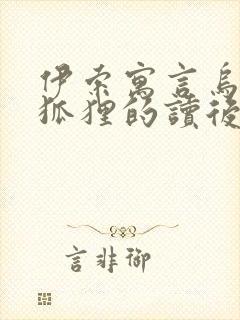 伊索寓言烏
狐狸的讀後
言非御